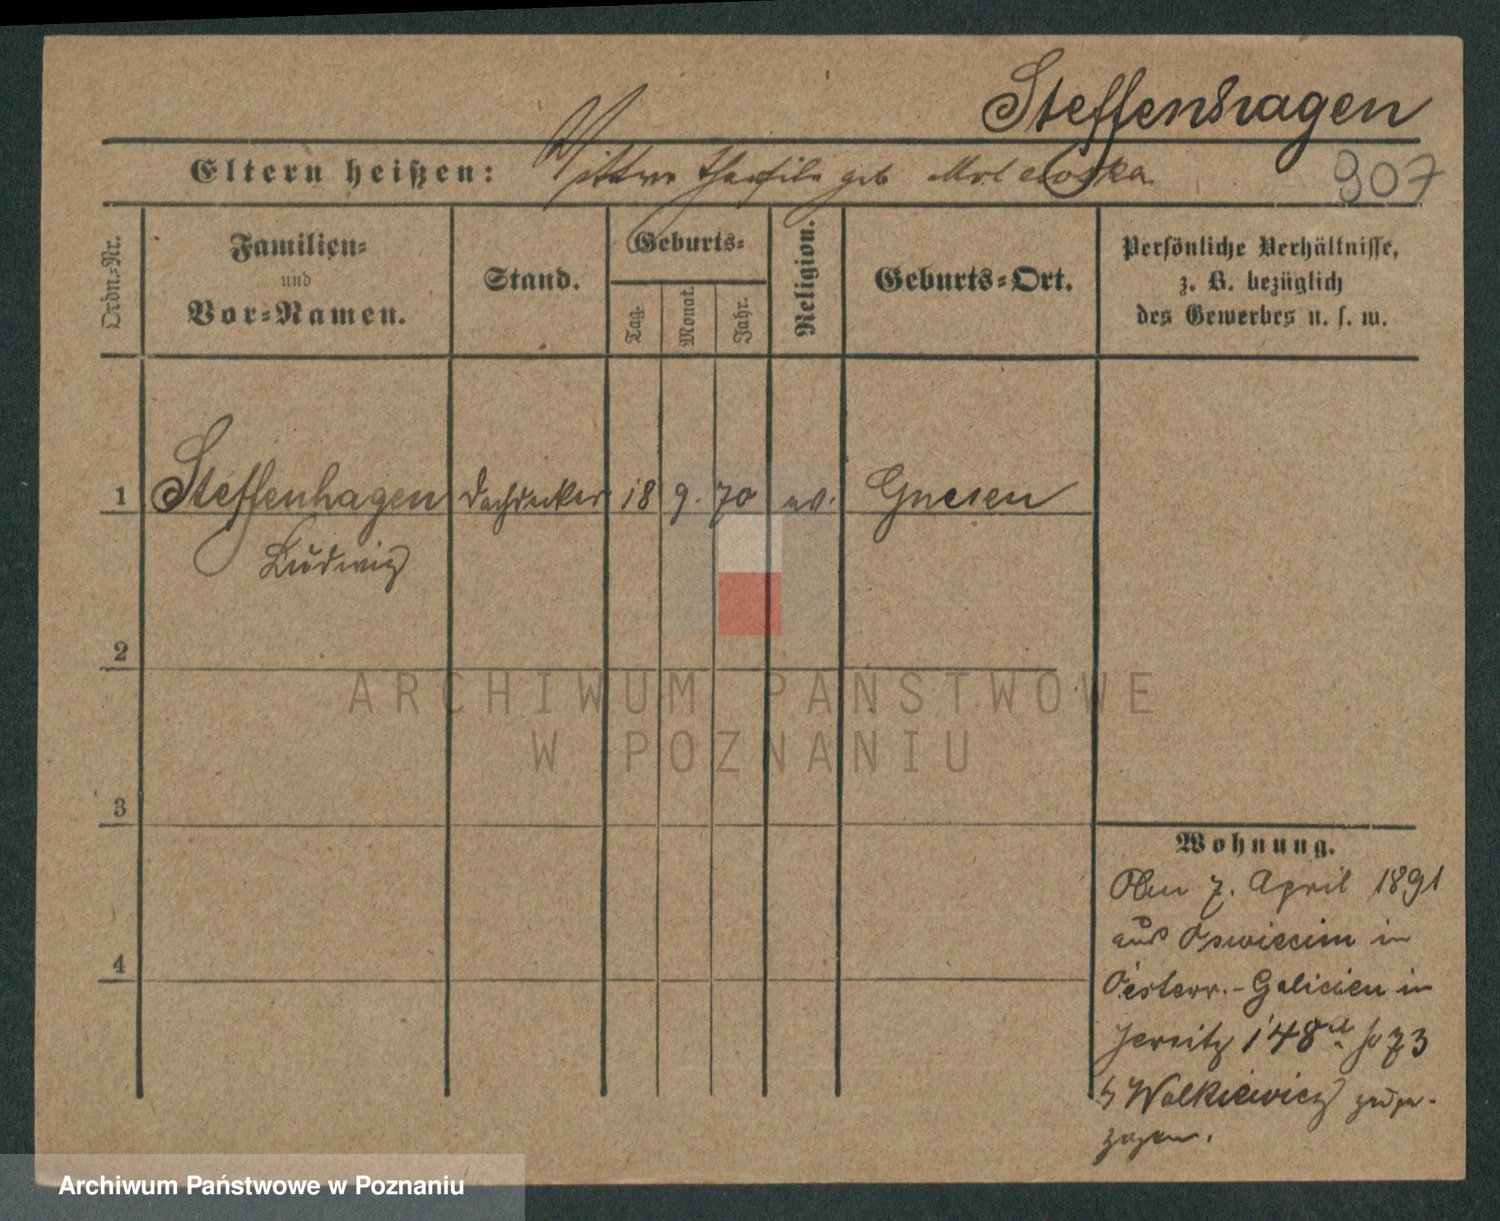 Steffenhagen
Eltern heißen: Wittwe Theofila geb
307
Ordn=Nr.
Familien=
und
Vor=Namen.
Stand.
Geburts=
Tag.
Monat.
Jahr.
Religion.
Geburts=Ort.
Persönliche Verhältnisse,
z. B. bezüglich
des Gewerbes u. s. w.
1 Steffenhagen Dachdecker 18 9. 70 ev. Gnesen
Ludwig
2
ARCHIWUM PAŃSTWOWE
W POZNANIU
3
4
Wohnung.
Am 7. April 1891
aus Oswiecim in
Österr.-Galicien in
Jersitz 148a 73
Walkiewicz zuge-
zogen.
Archiwum Państwowe w Poznaniu